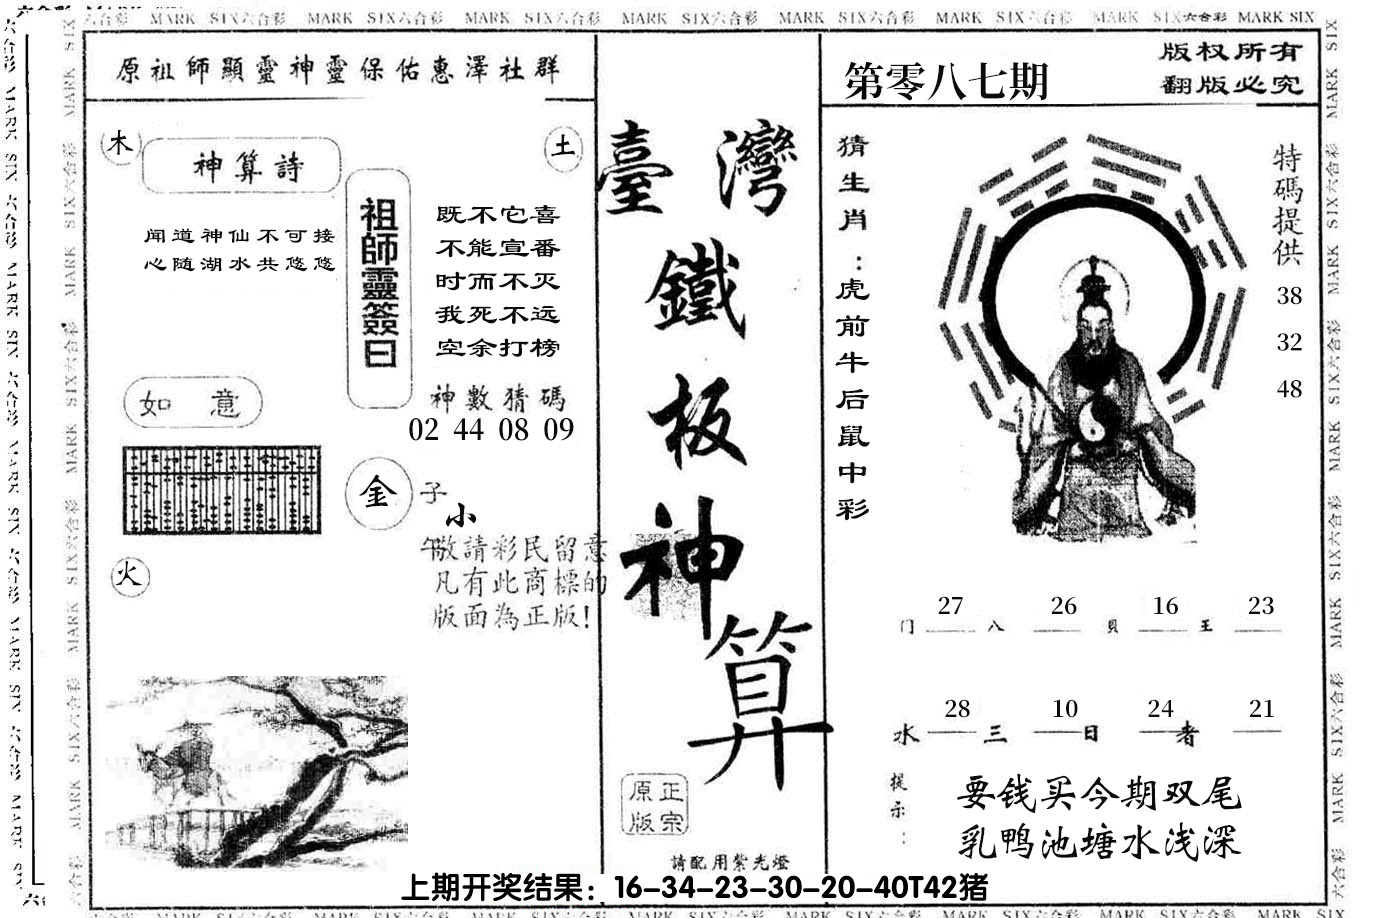 MARK SIX六合彩 MARK SIX六合彩 MARK SIX六合彩 MARK SIX六合彩 MARK SIX六合彩 MARK SIX六合彩 MARK SIX六合彩 MARK SIX
原祖師顯靈神靈保佑惠澤社群
木
神算詩
闻道神仙不可接
心随湖水共悠悠
土
祖師靈簽曰
既不它喜
不能宣番
时而不灭
我死不远
空余打榜
神數猜碼
02 44 08 09
如意
金
子
小
午
火
敬請彩民留意
凡有此商標的
版面為正版!
臺灣
鐵
板
神
算
原版正宗
請配用紫光燈
第零八七期
版权所有
翻版必究
猜生肖:虎前牛后鼠中彩
特碼提供
38
32
48
27 26 16 23
门 八 貝 王
28 10 24 21
水 三 日 者
提示:
要钱买今期双尾
乳鸭池塘水浅深
上期开奖结果：16-34-23-30-20-40T42猪